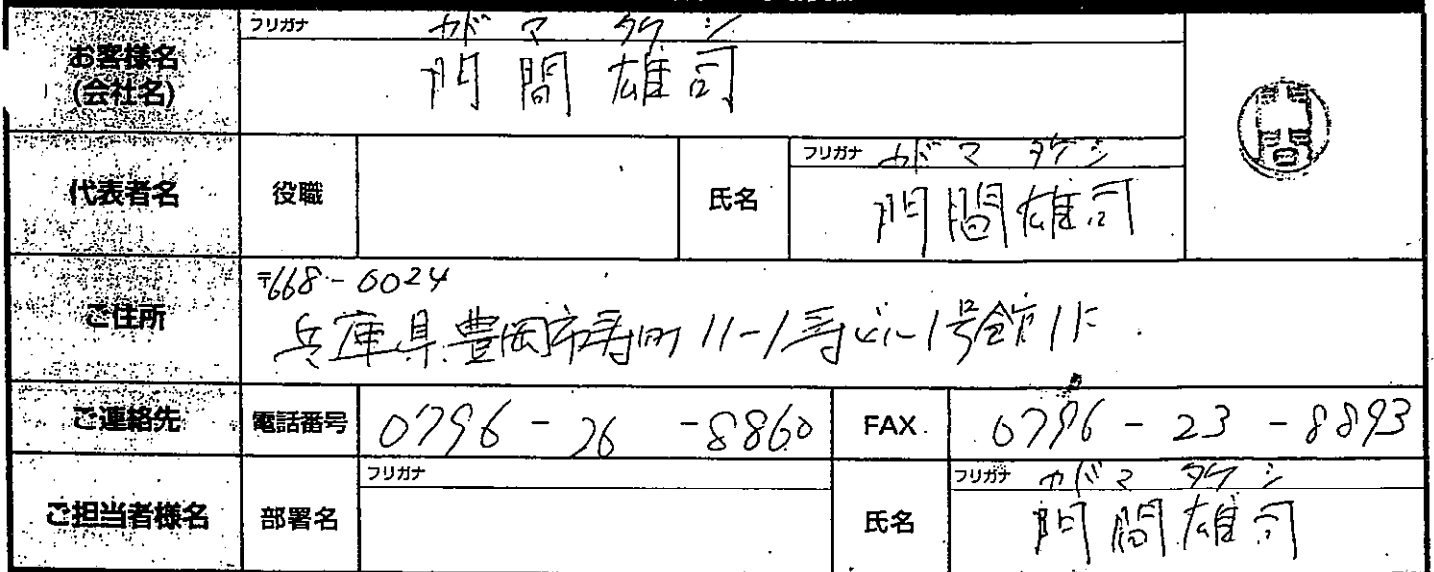 フリガナ ガマ タケシ
お客様名
(会社名)
門間雄司
代表者名 役職 氏名
フリガナ ガマ タケシ
門間雄司
ご住所
〒668-0024
兵庫県豊岡市寿町11-1寿ビル1号館1F
ご連絡先 電話番号 0796-26-8860 FAX. 0796-23-8893
ご担当者様名 部署名 フリガナ 氏名
フリガナ カドマ タケシ
門間雄司